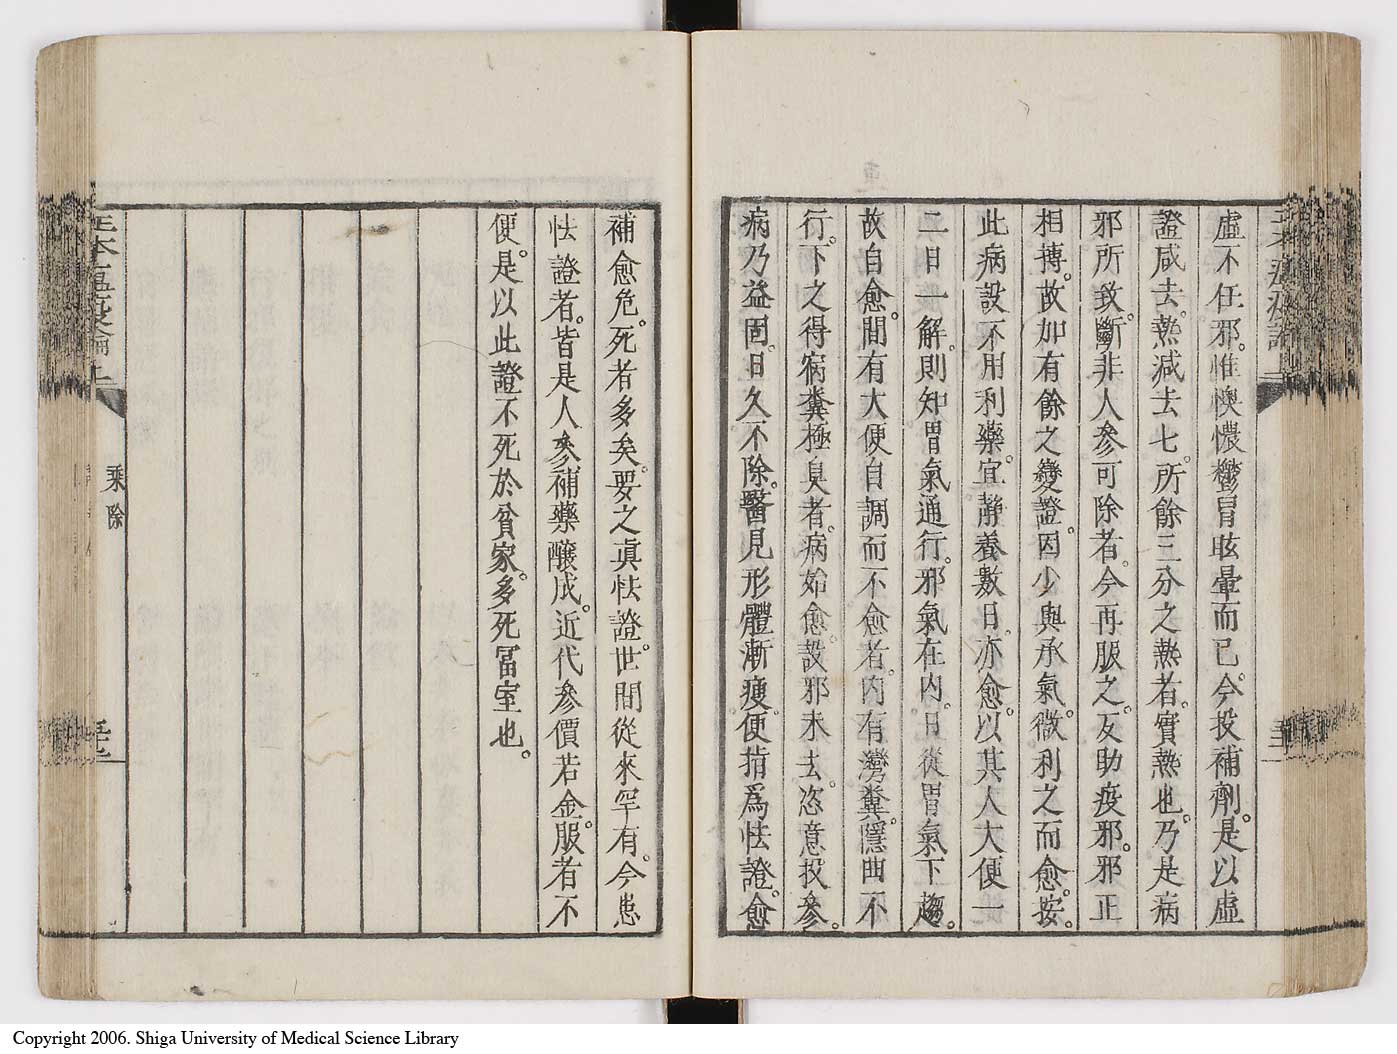 虛不任邪。惟懊憹鬱冒眩暈而已。今投補劑。是以虛
證咸去。熱減去七。所餘三分之熱者。實熱也。乃是病
邪所致。斷非人參可除者。今再服之。反助疫邪。邪正
相搏。故如有餘之變證。因少與承氣。微利之而愈。按。
此病設不用利藥。宜靜養數日。亦愈。以其人大便一
二日一解。則知胃氣通行。邪氣在內。日從胃氣下趨。
故自愈。間有大便自調而不愈者。內有灣糞。隱曲不
行。下之得宿糞極臭者。病始愈。設邪未去。恣意投參。
病乃益固。日久不除。醫見形體漸瘦。便指爲怯證。愈
補愈危。死者多矣。要之真怯證。世間從來罕有。今患
怯證者。皆是人參補藥釀成。近代參價若金。服者不
便。是以此證不死於貧家。多死冨室也。
正本瘟疫論上
乘除
Copyright 2006. Shiga University of Medical Science Library